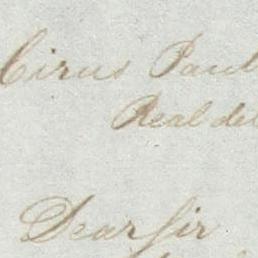 Cirus Paul
Real del
Dear Sir